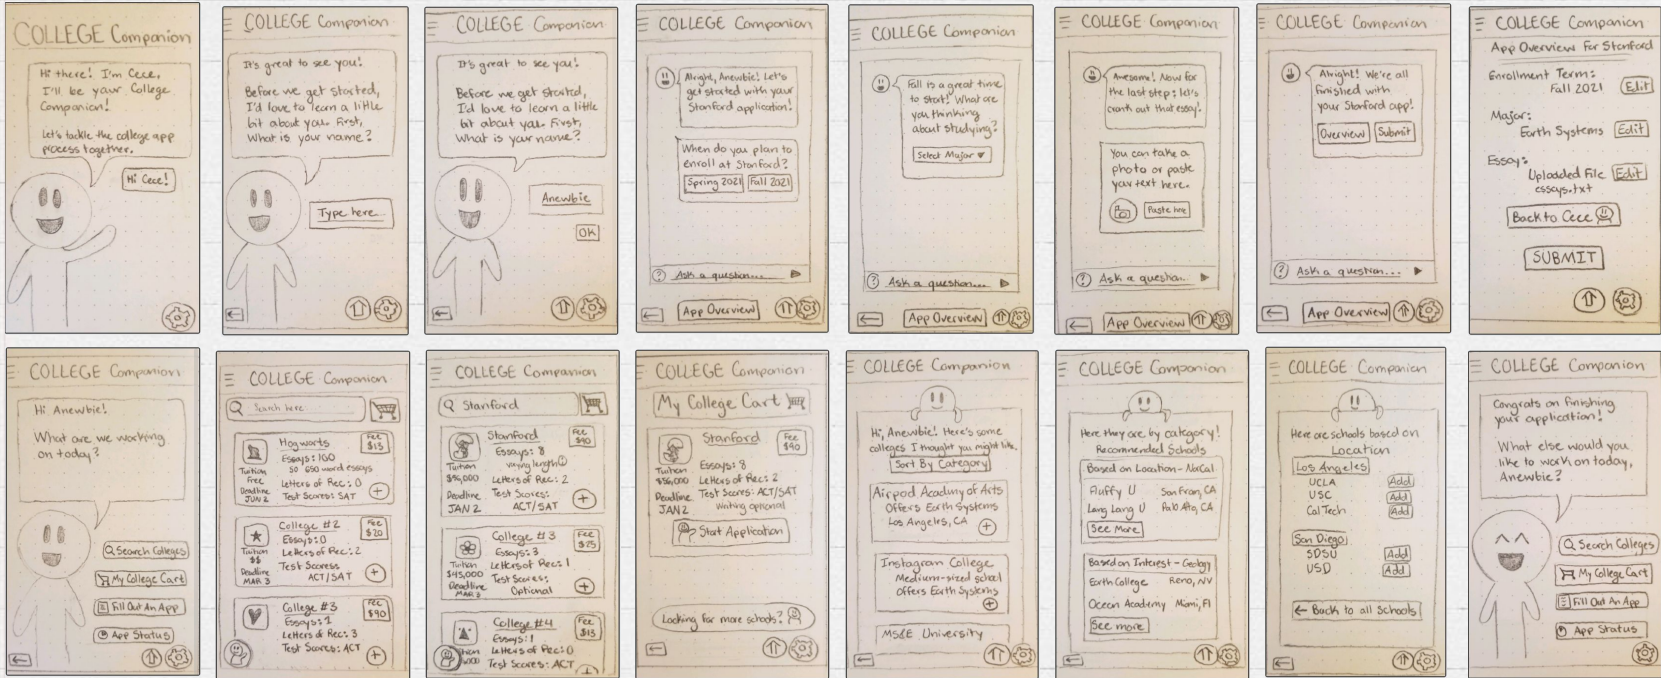 COLLEGE Companion
Hi there! I'm Cece,
I'll be your College
Companion!
Let's tackle the college app
process together.
Hi Cece!
COLLEGE Companion
It's great to see you!
Before we get started,
I'd love to learn a little
bit about you. First,
What is your name?
Type here
COLLEGE Companion
It's great to see you!
Before we get started,
I'd love to learn a little
bit about you. First,
What is your name?
Anewbie
OK
COLLEGE Companion
Alright, Anewbie! Let's
get started with your
Stanford application!
When do you plan to
enroll at Stanford?
Spring 2021 Fall 2021
? Ask a question...
App Overview
COLLEGE Companion
Fall is a great time
to start! What are
you thinking
about studying?
Select Major
? Ask a question...
App Overview
COLLEGE Companion
Awesome! Now for
the last step: let's
crank out that essay!
You can take a
photo or paste
your text here.
Paste here
? Ask a question...
App Overview
COLLEGE Companion
Alright! We're all
finished with
your Stanford app!
Overview Submit
? Ask a question...
App Overview
COLLEGE Companion
App Overview for Stanford
Enrollment Term:
Fall 2021 Edit
Major:
Earth Systems Edit
Essay:
Uploaded File Edit
essays.txt
Back to Cece
SUBMIT
COLLEGE Companion
Hi Anewbie!
What are we working
on today?
Search Colleges
My College Cart
Fill Out An App
App Status
COLLEGE Companion
Search here
Hogwarts Fee
$15
Essays: 100
50 650 word essays
Tuition Letters of Rec: 0
Free Test Scores: SAT
Deadline
JUN 2
+
College #2 Fee
$20
Essays: 0
Tuition Letters of Rec: 2
$$ Test Scores:
Deadline ACT/SAT
MAR 3
+
College #3 Fee
$90
Essays: 1
Letters of Rec: 3
Test Scores: ACT
+
COLLEGE Companion
Stanford
Stanford Fee
$90
Essays: 8
varying length
Tuition Letters of Rec: 2
$56,000 Test Scores:
Deadline ACT/SAT
JAN 2
+
College #3 Fee
$25
Essays: 3
Tuition Letters of Rec: 1
$45,000 Test Scores:
Deadline Optional
MAR 3
+
College #4 Fee
$15
Essays: 1
Letters of Rec: 0
Test Scores: ACT
+
COLLEGE Companion
My College Cart
Stanford Fee
$90
Essays: 8
Tuition Letters of Rec: 2
$56,000
Deadline Test Scores: ACT/SAT
JAN 2 Writing optional
Start Application
Looking for more schools?
COLLEGE Companion
Hi, Anewbie! Here's some
colleges I thought you might like.
Sort By Category
Airpod Academy of Arts
Offers Earth Systems
Los Angeles, CA
+
Instagram College
Medium-sized school
Offers Earth Systems
+
MS&E University
COLLEGE Companion
Here they are by category!
Recommended Schools
Based on Location - NorCal
Fluffy U San Fran, CA
Lang Lang U Palo Alto, CA
See More
Based on Interest - Geology
Earth College Reno, NV
Ocean Academy Miami, Fl
See more
COLLEGE Companion
Here are schools based on
Location
Los Angeles
UCLA Add
USC Add
CalTech Add
San Diego
SDSU Add
USD Add
← Back to all Schools
COLLEGE Companion
Congrats on finishing
your application!
What else would you
like to work on today,
Anewbie?
Search Colleges
My College Cart
Fill Out An App
App Status